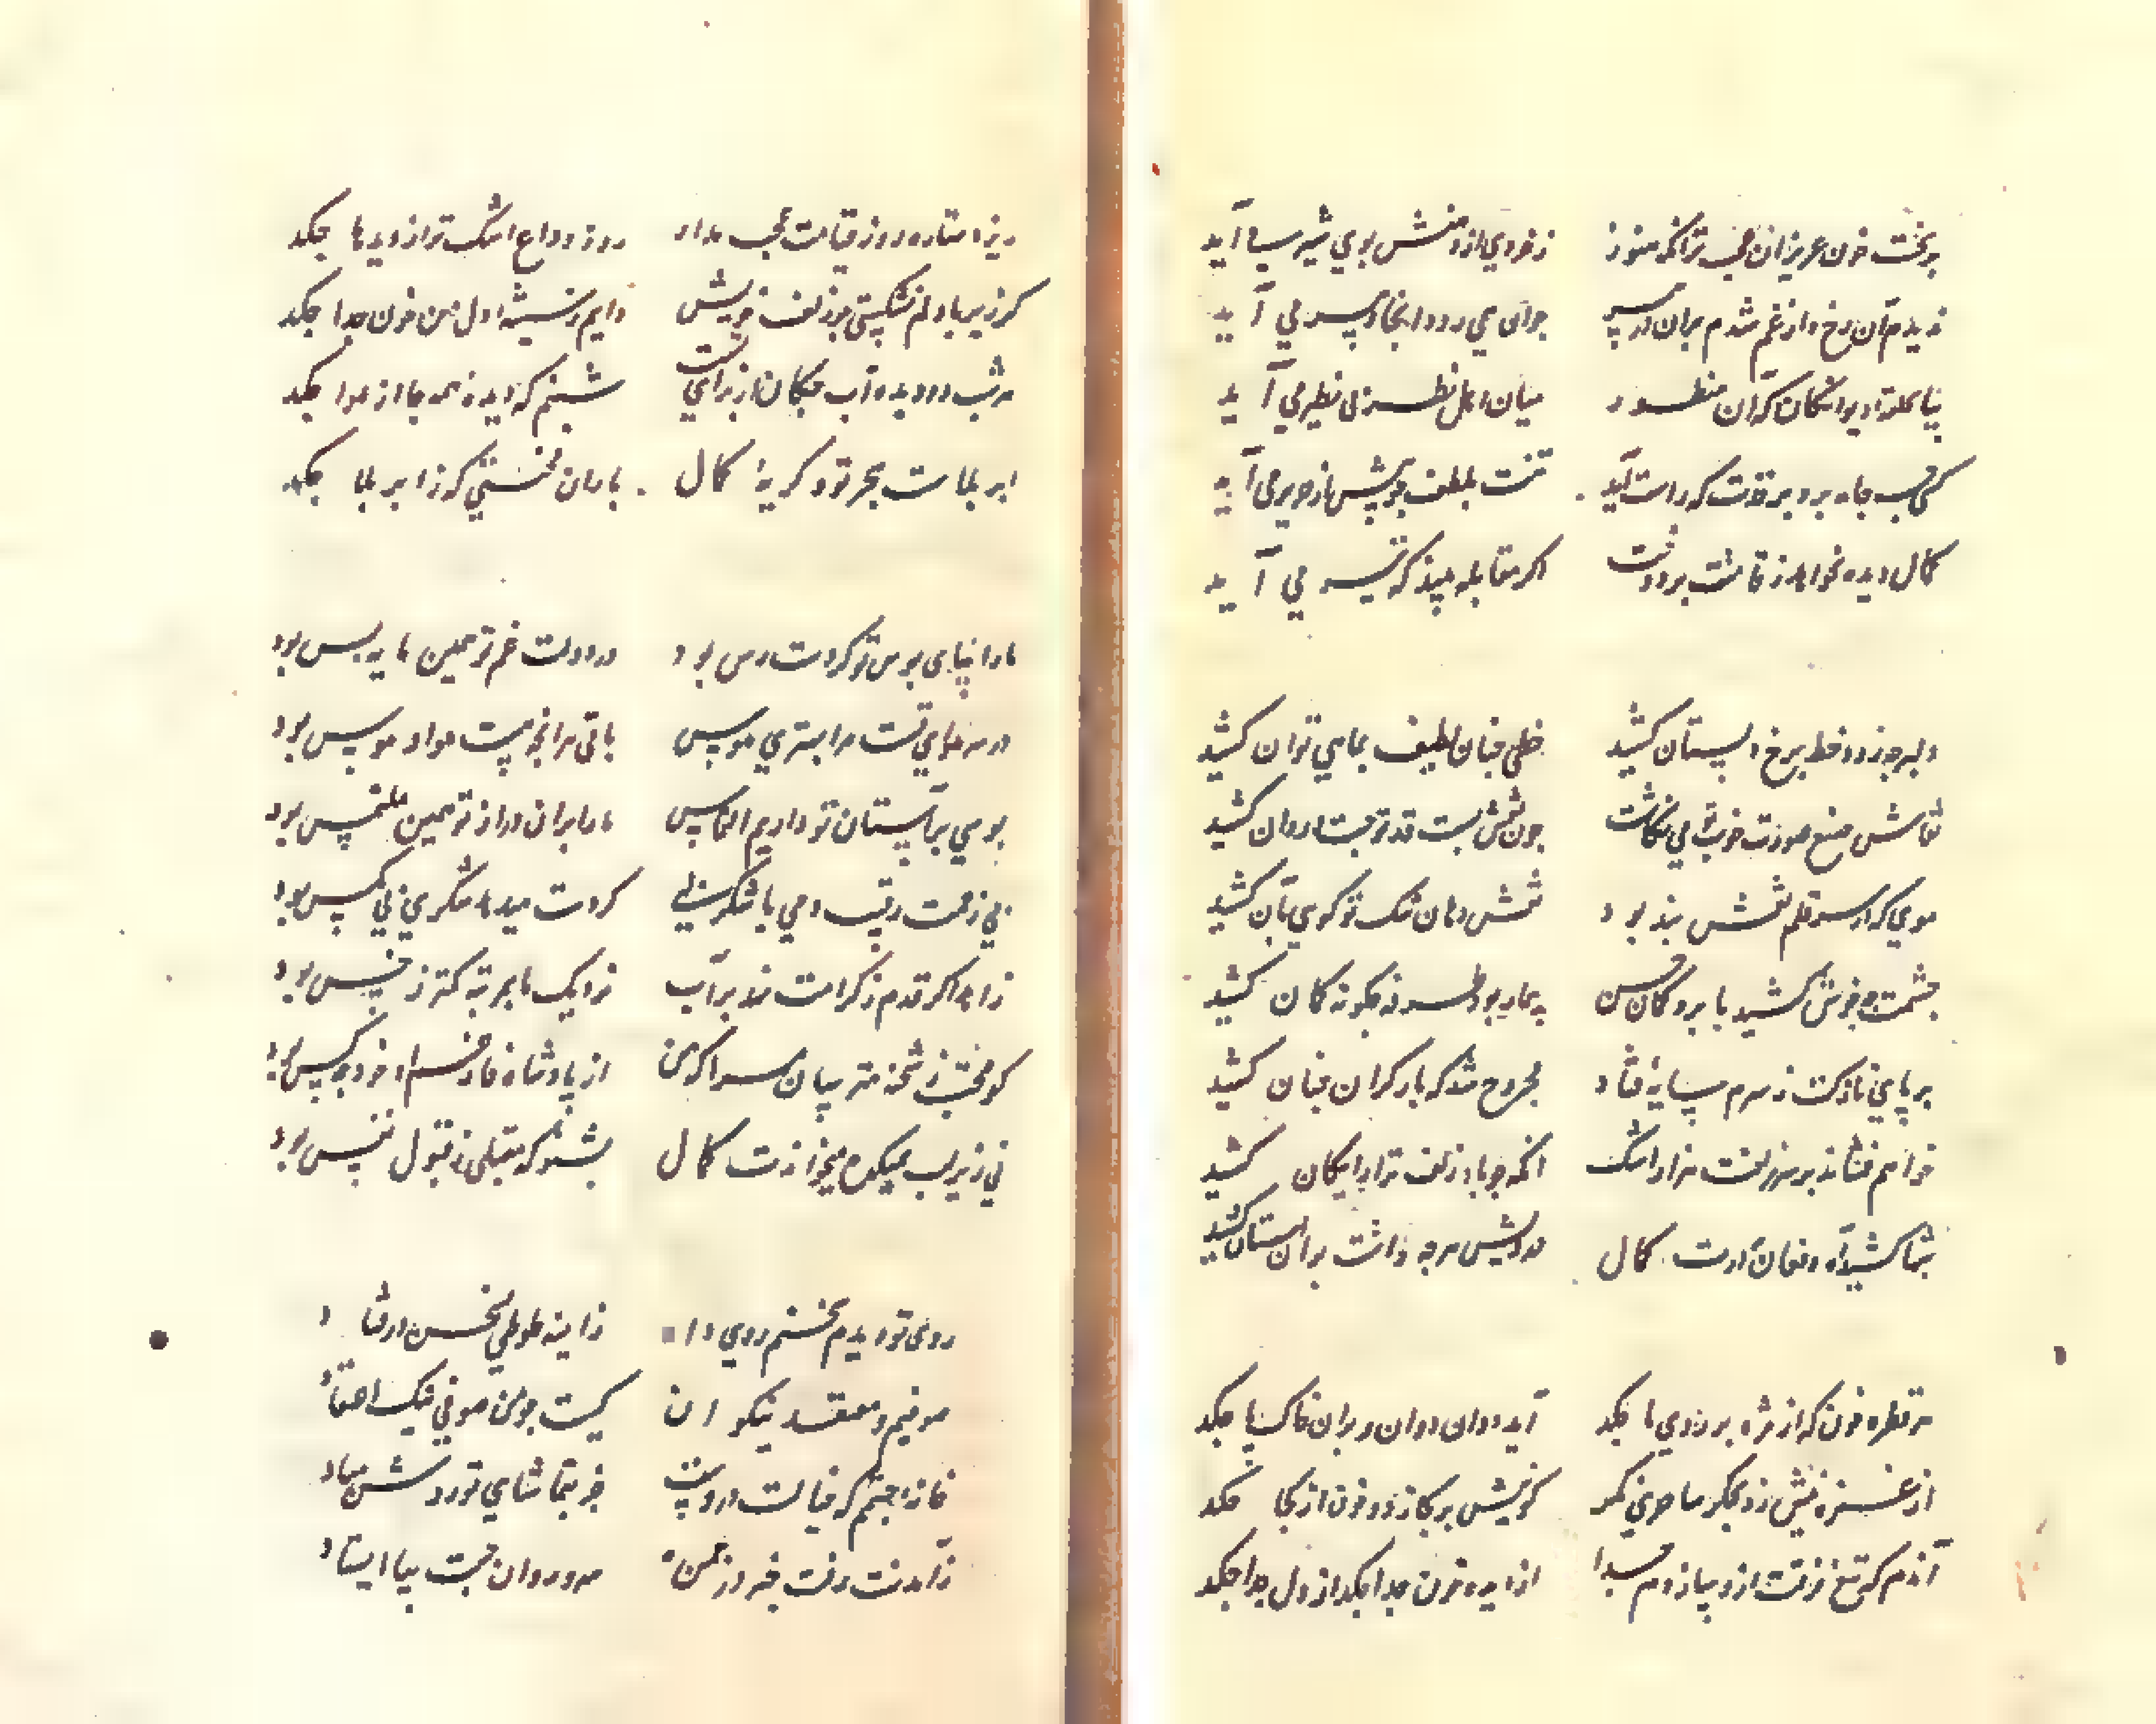 بریخت خون عزیزان لب ترا که هنوز ز خردی از دهنش بوی شیر می آید
ندیدم آن رخ و از غم شدم بران در پیر جوان می رود اینجا و پیر می آید
میان اهل نظر بی نظیر می آید
کسی که جامه برد بر قدت که راست آید تنت بلطف چو پیش از حریر می آید
کمال دیده نخواهد ز قامتت بر دوخت اگر مقابله بیند که تیر می آید
دلبر چو زد خط بر رخ دلستان کشید خطی چنان لطیف بماهی توان کشید
نقاش صنع صورت خوبت چو می نگاشت چون نقش بست قد تو جانها روان کشید
مویی که از سر قلم نقش بند بود نقش دهان تنگ تو گویی بآن کشید
چشمت چه خوش کشید بابرو کمان حسن بیمار بود طرفه چگونه کمان کشید
بر پای نازکت ز سرم سایه فتاد مجروح شد که بار گران چنان کشید
خواهم فشاند بر سر زلفت هزار اشک آنکه چو باد زلف ترا رایگان کشید
شبها کشید آه و فغان بر درت کمال درویش هر چه داشت بر آن آستان کشید
هر قطره خون که از مژه بر روی ما چکد آید دوان دوان و بران خاک پا چکد
از غمزه نیش زد بجگر ما چو بی نگر کو نیش بر کجا زد و خون از کجا چکد
آندم که تیغ فرقت ازو سازدم جدا از دیده خون جدا چکد از دل جدا چکد
ریزد ستاره روز قیامت عجب مدار روز وداع اشک تر از دیدها چکد
گر زیر بار دلم نشکستی چو زلف خویش دایم ز شیشه دل من خون چرا چکد
هر شب دو دیده آب چکان از برای تست شبنم که دیده همه جا از هوا چکد
ابر بلاست بحر تو و گریه کمال باران محنتی که ز ابر بلا چکد
ما را بپای بوس تو گر دست رس بود در دولت غم تو همین مایه بس بود
در سر هوای تست مرا بهتری هوس باقی هر آنچه هست هوا و هوس بود
بوسی بر آستان تو داریم التماس ما را بران در از تو همین ملتمس بود
بی زحمت رقیب دمی با شکر لبی گر دست میدهد شکری بی مگس بود
زاهد اگر قدم ز کرامت نهد بر آب نزدیک ما بمرتبه کمتر ز خس بود
گو محتسب ز شحنه مترسان مرا که من از پادشاه فارغم او خود چه کس بود
نی زیر لب بمیکده میخواندت کمال بشنو که مقبلی ز قبول نفس بود
روی تو دیدم سخنم روی داد ز آینه طوطی بسخن در فتاد
صوفیم و معتقد نیکوان کیست چو من صوفی نیک اعتقاد
خانه چشم که خیالت دروست جز بتماشای تو روشن مباد
ز آمدنت رفت خبر در چمن سرو روان جست بپا ایستاد